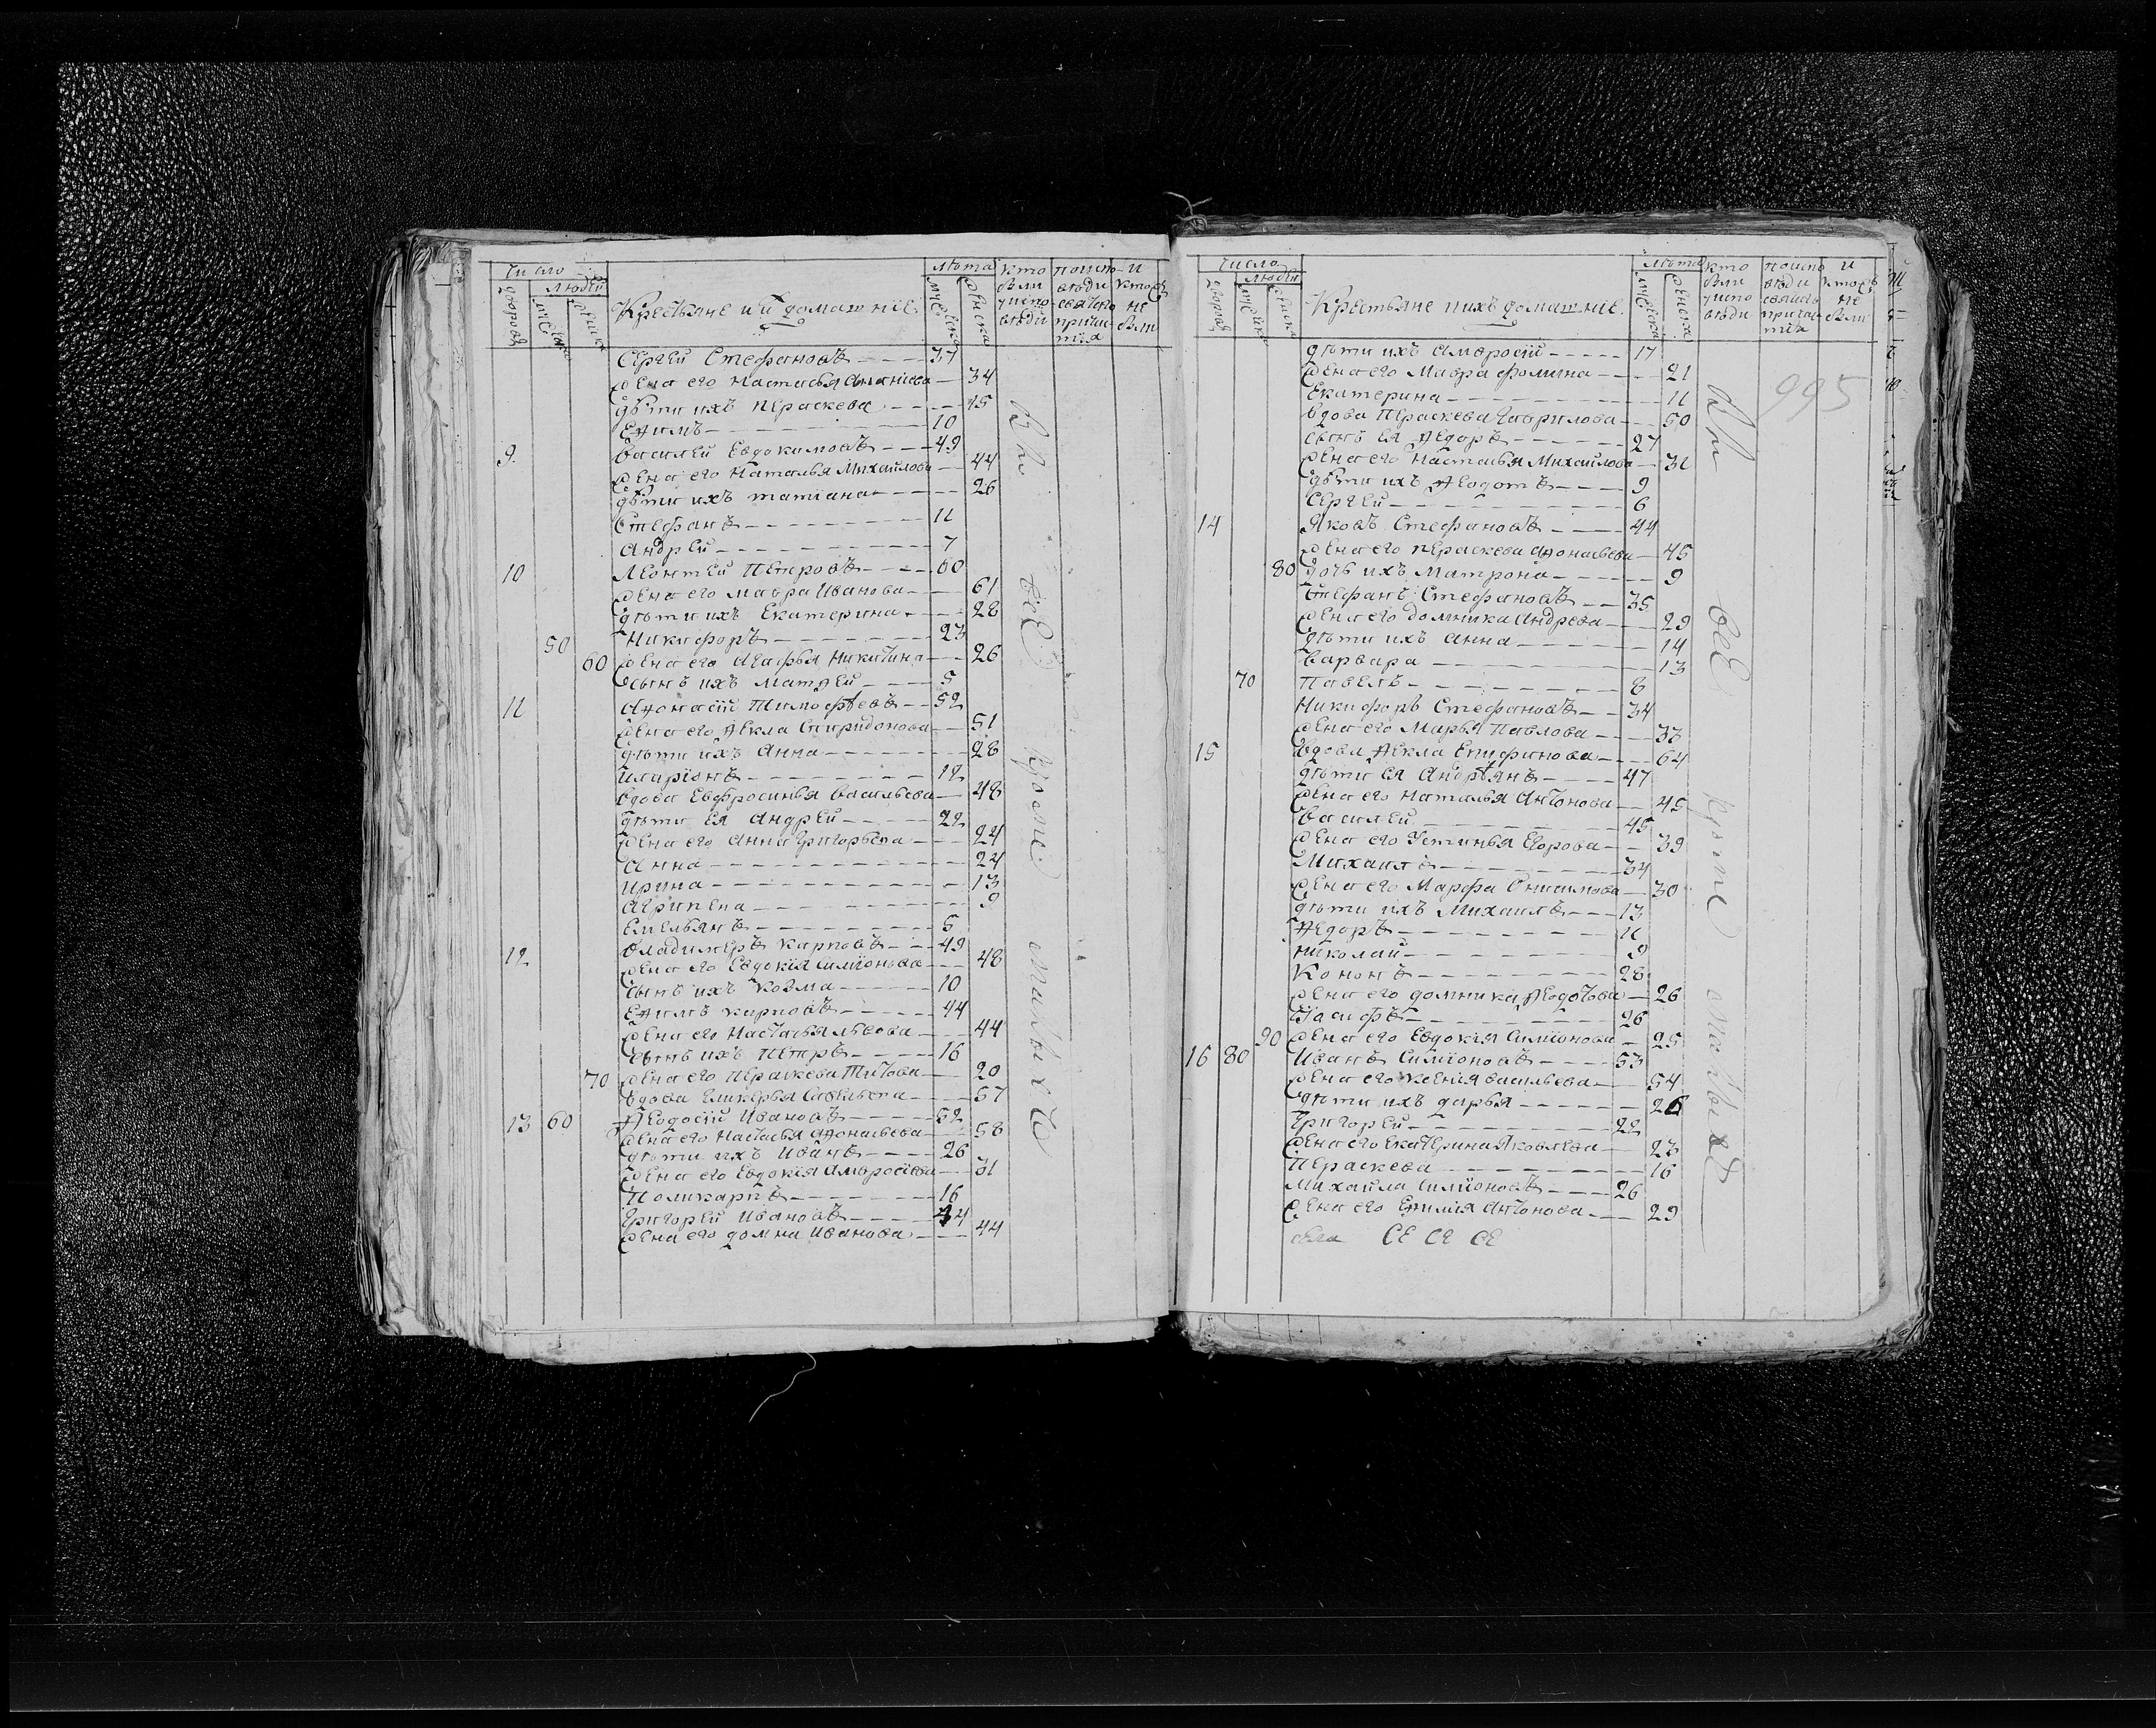 число
людей
дворовъ
мужеска
женска
Крестьяне и их домашніе
лѣта
мужеска
женска
кто были у исповѣди
по исповѣди и святаго причастія
и кто не были
Сергей Стефановъ 37
жена его Настасья Ананиева 34
дѣти ихъ Пераскева 15
Ефимъ 10
9. Василей Евдокимовъ 49
жена его Наталья Михайлова 44
дѣти ихъ татіана 26
Стефанъ 11
Андрей 7
10 Леонтей Петровъ 60
жена его Мавра Иванова 61
дѣти ихъ Екатерина 28
50 Никифоръ 23
60 жена его Агафья Никитина 26
сынъ ихъ Матфей 5
11 Афонасій Тимофѣевъ 52
жена его Фекла Спиридонова 51
дѣти ихъ Анна 28
Иларіонъ 12
вдова Евфросинья Васильева 48
дѣти ея Андрей 22
жена его Анна Григорьева 24
Анна 24
Ирина 13
Агрипена 9
Емельянъ 5
12 Владимеръ Карповъ 49
жена его Евдокія Симіонова 48
сынъ ихъ Козма 10
Ефимъ Карповъ 44
жена его Настасья Львова 44
сынъ ихъ Петръ 16
70 жена его Пераскева Титова 20
вдова Гликерья Савельева 57
13 60 Феодосій Ивановъ 52
жена его Настасья Афонасьева 58
дѣти ихъ Иванъ 26
жена его Евдокія Амвросіева 31
Поликарпъ 16
Григорей Ивановъ 44
жена его Домна Иванова 44
Вси все кроме малыхъ
число
людей
дворовъ
мужеска
женска
Крестьяне и ихъ домашніе
лѣта
мужеска
женска
кто были у исповѣди
по исповѣди и святаго причастія
и кто не были
995
дѣти ихъ Амвросій 17
жена его Мавра Фомина 21
Екатерина 11
вдова Пераскева Гаврилова 50
сынъ ея Федоръ 27
жена его Настасья Михайлова 31
дѣти ихъ Федотъ 9
Сергей 6
14 Яковъ Стефановъ 44
жена его Пераскева Афонасьева 45
80 дочь ихъ Матрона 9
Стефанъ Стефановъ 35
жена его Домника Андрева 29
дѣти ихъ Анна 14
Варвара 13
70 Павелъ 8
Никифоръ Стефановъ 34
жена его Марья Павлова 33
15 вдова Фекла Епифанова 64
дѣти ея Андрѣянъ 47
жена его Наталья Антонова 45
Василей 45
жена его Устинья Егорова 39
Михаилъ 34
жена его Марфа Онисимова 30
дѣти ихъ Михаилъ 13
Федоръ 11
Николай 9
Кононъ 28
жена его Домника Федотова 26
Іосифъ 26
90 жена его Евдокія Симіонова 25
16 80 Иванъ Симіоновъ 53
жена его Ксенія Васильева 54
дѣти ихъ Дарья 26
Григорей 22
жена его Екатерина Яковлева 23
Пераскева 16
Михайла Симіоновъ 26
жена его Емилія Антонова 29